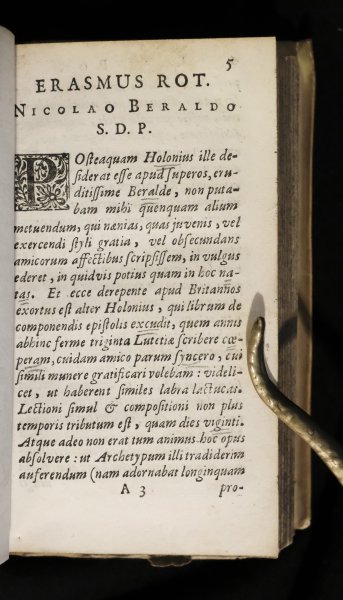 5
ERASMUS ROT.
NICOLAO BERALDO
S. D. P.
POſteaquam Holonius ille de-
ſiderat eſſe apud ſuperos, eru-
ditiſſime Beralde, non puta-
bam mihi quenquam alium
metuendum, qui nænias, quas juvenis, vel
exercendi ſtyli gratia, vel obſecundans
amicorum affectibus ſcripſiſſem, in vulgus
ederet, in quidvis potius quam in hoc na-
tas. Et ecce derepente apud Britannos
exortus eſt alter Holonius, qui librum de
componendis epiſtolis excudit, quem annis
abhinc ferme triginta Lutetiæ ſcribere cœ-
peram, cuidam amico parum ſyncero, cui
ſimili munere gratificari volebam: videli-
cet, ut haberent ſimiles labra lactucas.
Lectioni ſimul & compoſitioni non plus
temporis tributum eſt, quam dies viginti.
Atque adeo non erat tum animus hoc opus
abſolvere: ut Archetypum illi tradiderim
auferendum (nam adornabat longinquam
A 3 pro-